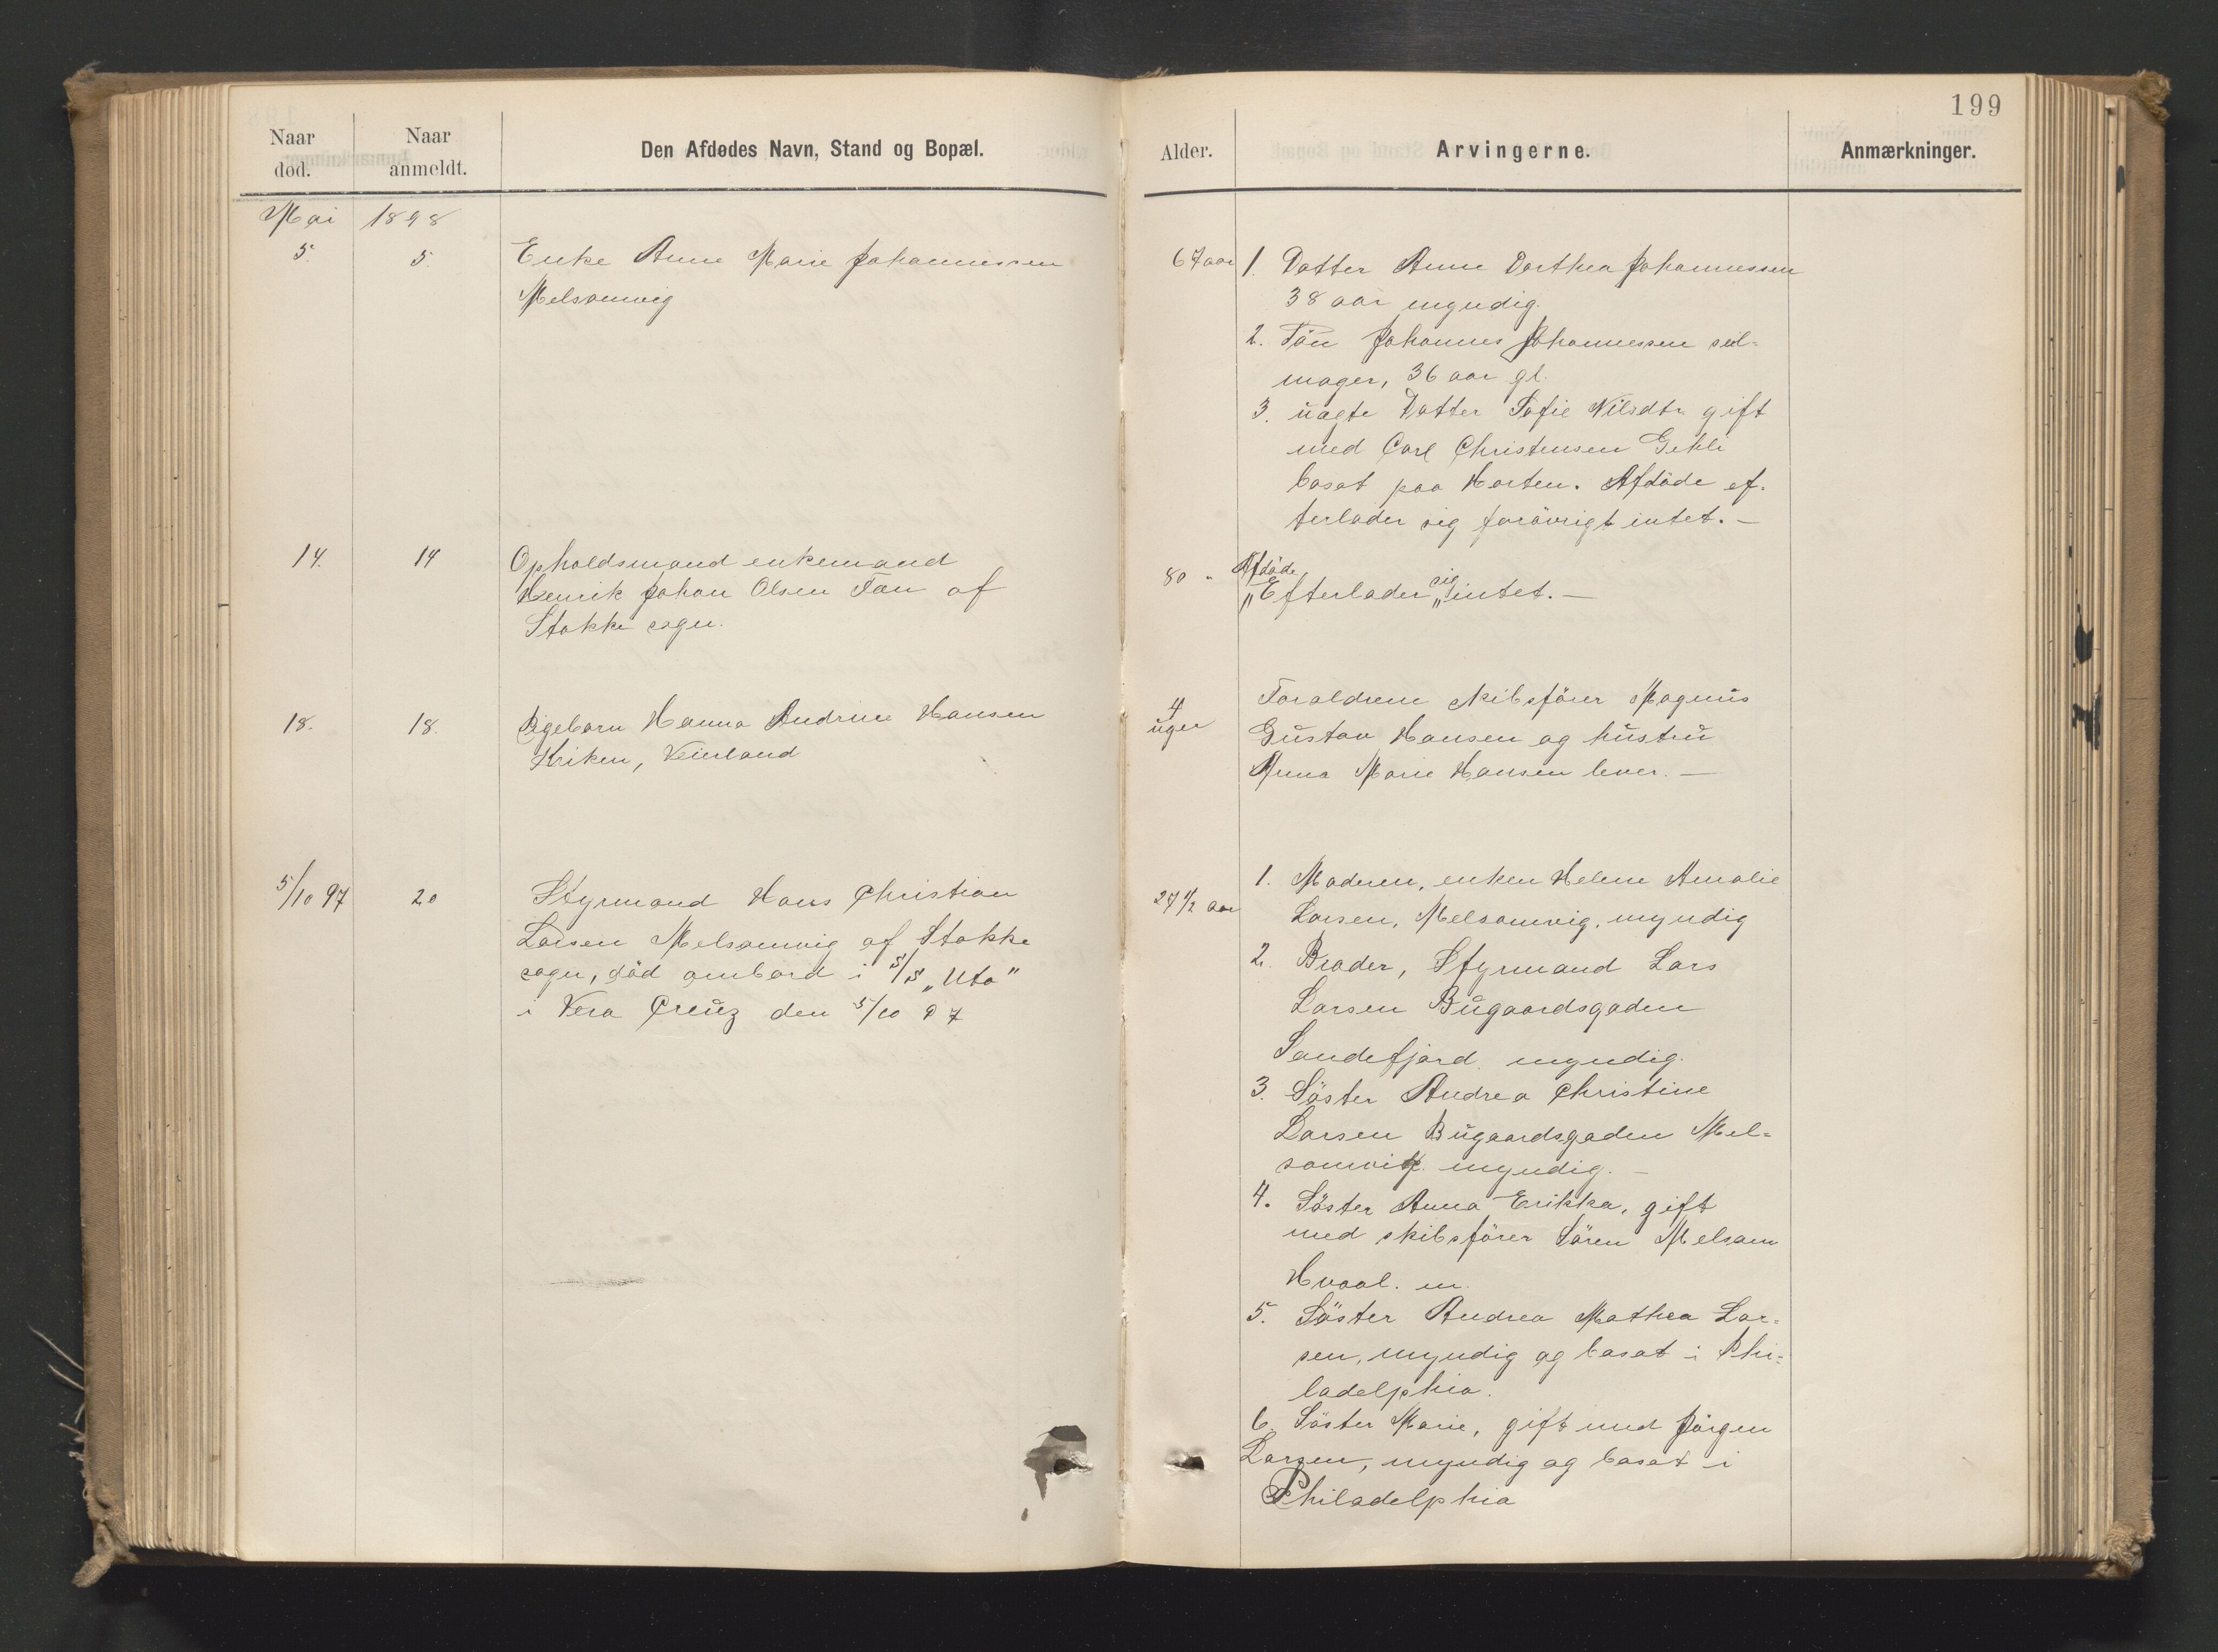 199
Naar død. Naar anmeldt. Den Afdødes Navn, Stand og Bopæl. Alder. Arvingerne. Anmærkninger.
Mai 1898
5. 5. Enke Anne Marie Johannessen
Melsomvig
67 aar 1. Datter Anne Dorthea Johannessen
38 aar myndig.
2. Sön Johannes Johannessen seil-
mager, 36 aar gl.
3. uægte Datter Sofie Nilsdtr gift
med Carl Christensen Gekli
bosat paa Horten. Afdöde ef-
terlader sig forövrigt intet. —
14. 14 Opholdsmand enkemand
Henrik Johan Olsen Fön af
Stokke sogn.
80 " Afdöde
"Efterlader sig "intet. —
18. 18. Pigebarn Hanna Andrine Hansen
Kriken, Veierland
4
uger
Forældrene skibsförer Magnus
Gustav Hansen og hustru
Anna Marie Hansen lever. —
5/10 97 20 Styrmand Hans Christian
Larsen Melsomvig af Stokke
sogn, död ombord i S/S „Uto"
i Vera Creuz den 5/10 97
27 1/2 aar 1. Moderen, enken Helene Amalie
Larsen, Melsomvig, myndig
2. Broder, Styrmand Lars
Larsen Bugaardsgaden
Sandefjord. myndig.
3. Söster Andrea Christine
Larsen Bugaardsgaden Mel-
somvig. myndig. —
4. Söster Anna Erikka, gift
med skibsförer Sören Melsom
Hvaal. m.
5. Söster Andrea Mathea Lar-
sen, myndig og bosat i Phi-
ladelphia.
6. Söster Marie, gift med Jörgen
Larsen, myndig og bosat i
Philadelphia